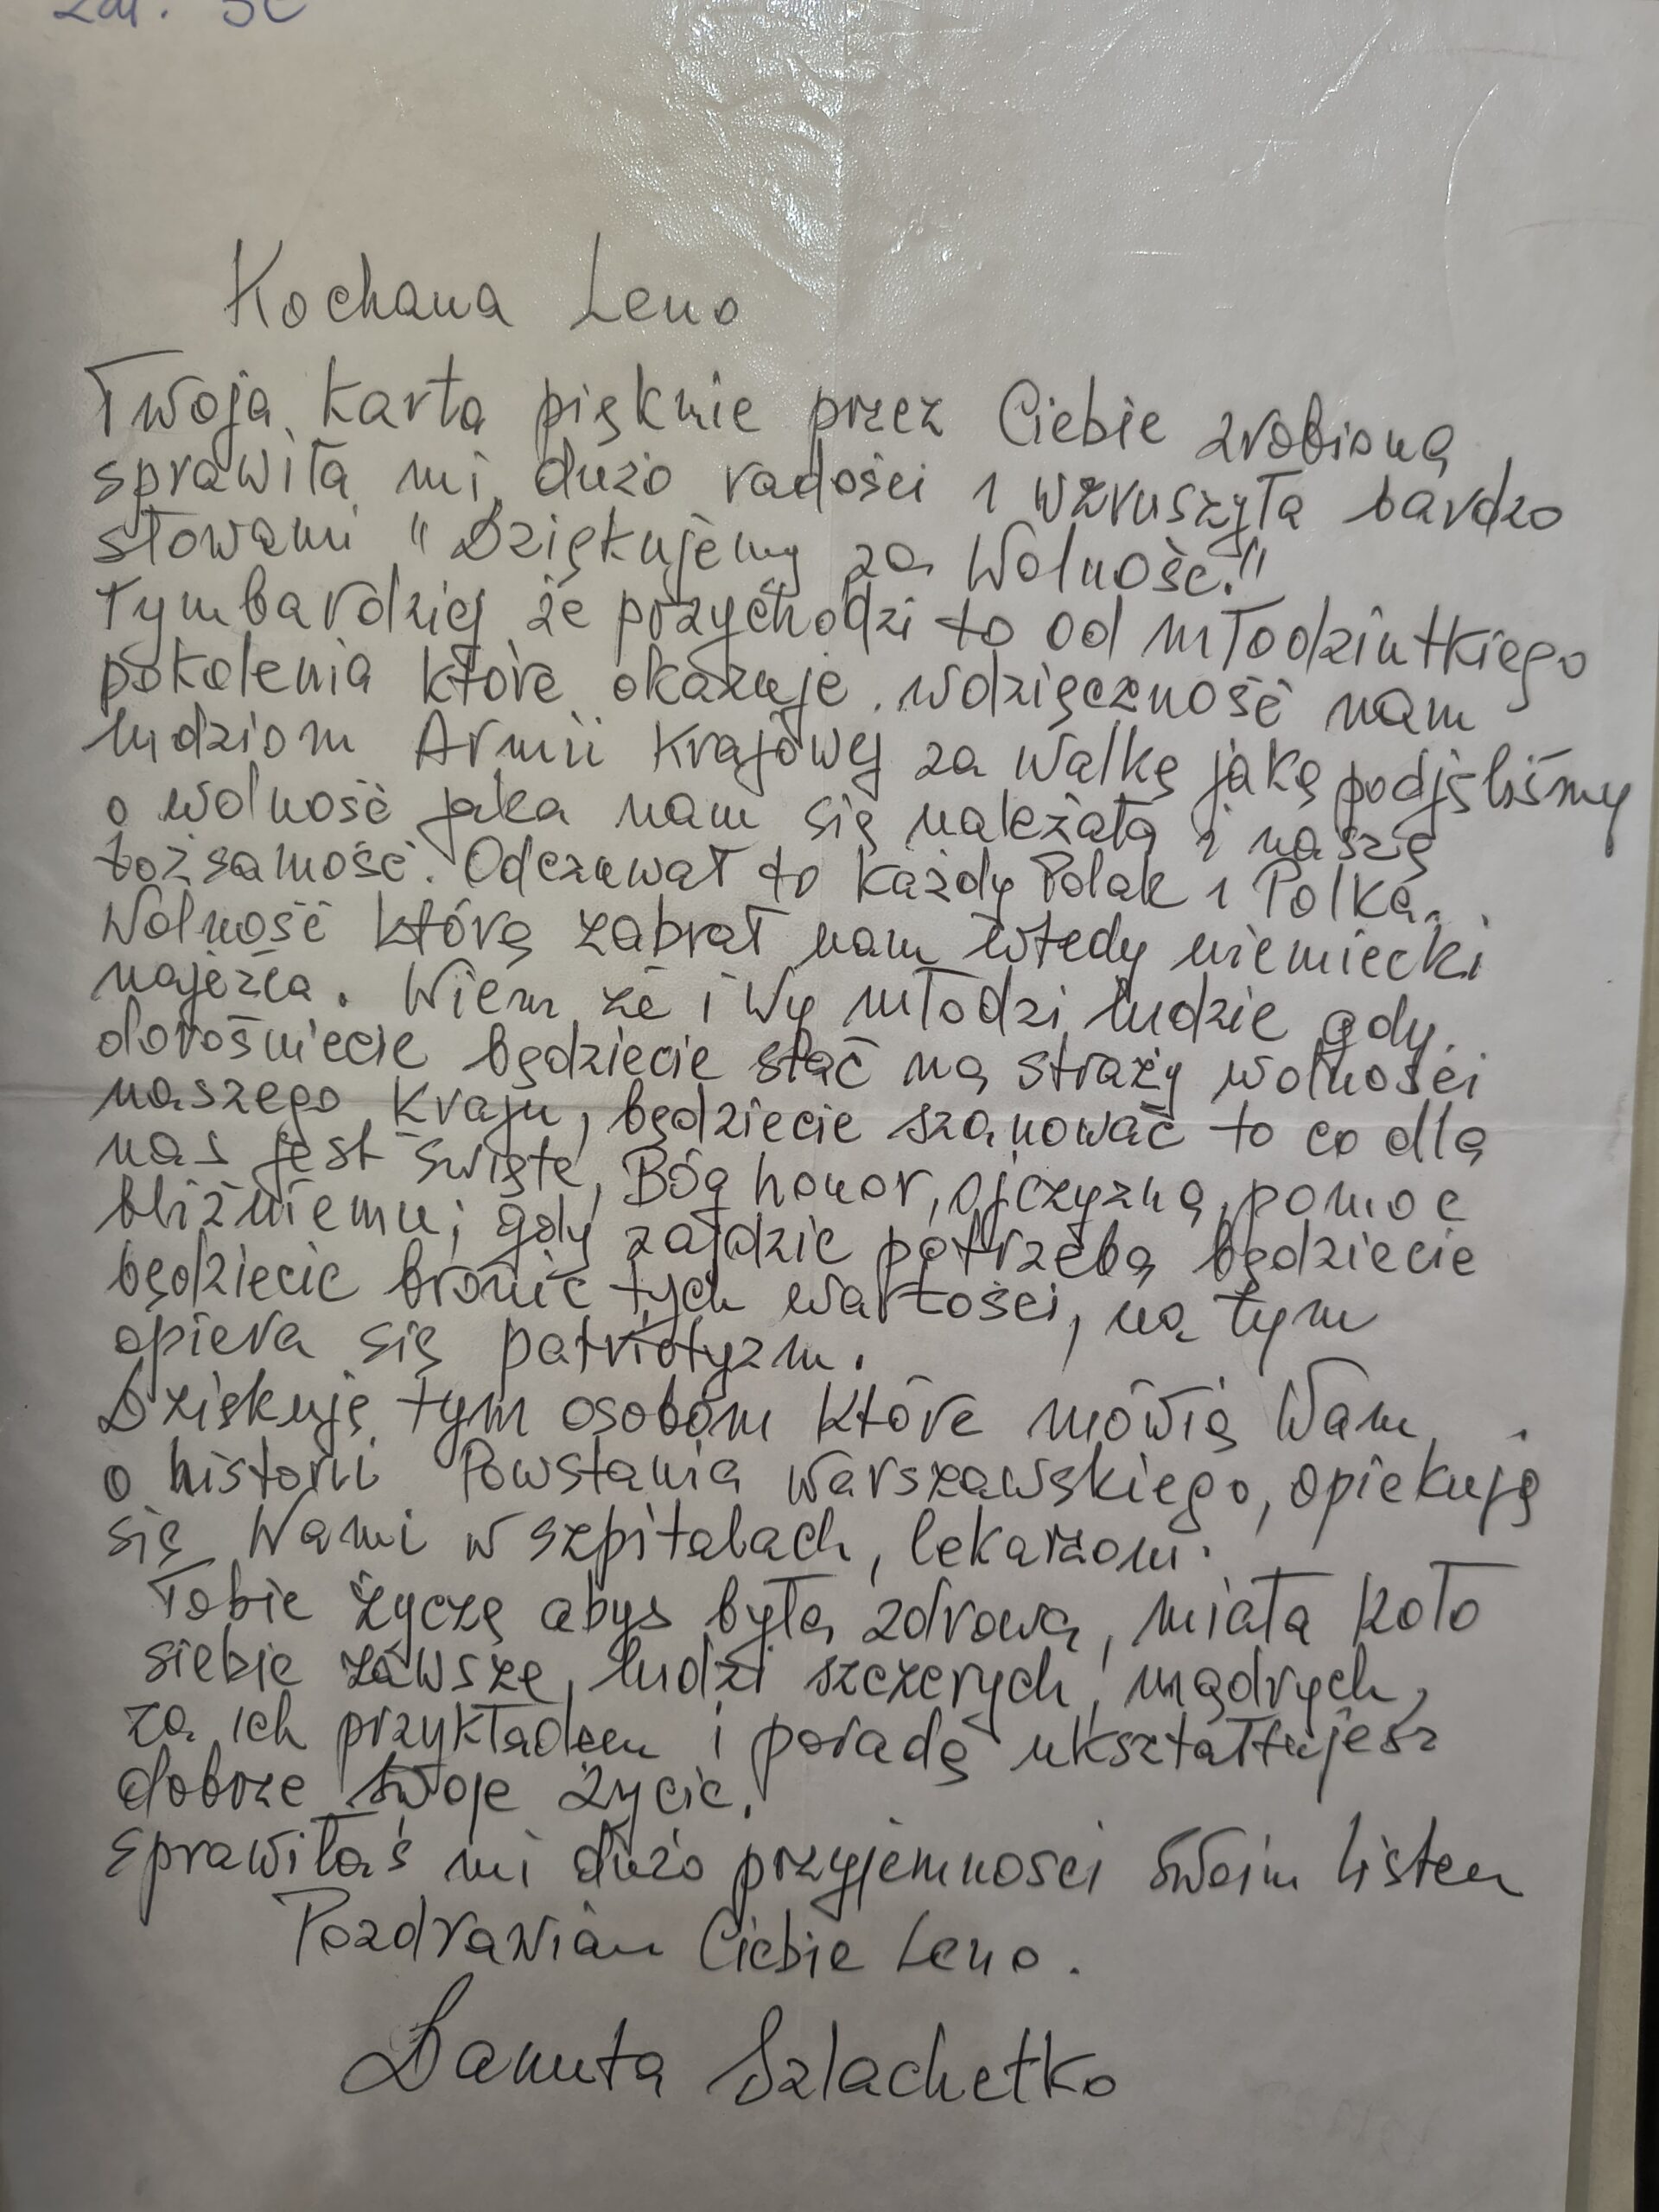 Kochana Leno
Twoja karta pięknie przez Ciebie zrobiona
sprawiła mi dużo radości i wzruszyła bardzo
słowami "Dziękujemy za Wolność."
Tymbardziej że przychodzi to od młodziutkiego
pokolenia które okazuje wdzięczność nam
ludziom Armii Krajowej za walkę jaką podjęliśmy
o wolność jaka nam się należała i naszą
tożsamość. Odczuwał to każdy Polak i Polka.
Wolność którą zabrał nam wtedy niemiecki
najeźca. Wiem że i Wy młodzi ludzie gdy
dorośniecie będziecie stać na straży wolności
naszego Kraju, będziecie szanować to co dla
nas jest święte, Bóg honor, ojczyzna, pomoc
bliźniemu, gdy zajdzie potrzeba będziecie
będziecie bronić tych wartości, na tym
opiera się patriotyzm.
Dziękuję tym osobom które mówią Wam
o historii Powstania Warszawskiego, opiekują
się Wami w szpitalach, lekarzom.
Tobie życzę abyś była zdrowa, miała koło
siebie zawsze ludzi szczerych, mądrych,
za ich przykładem i poradą ukształtujesz
dobrze swoje życie.
Sprawiłaś mi dużo przyjemności swoim listem
Pozdrawiam Ciebie Leno.
Danuta Szlachetko